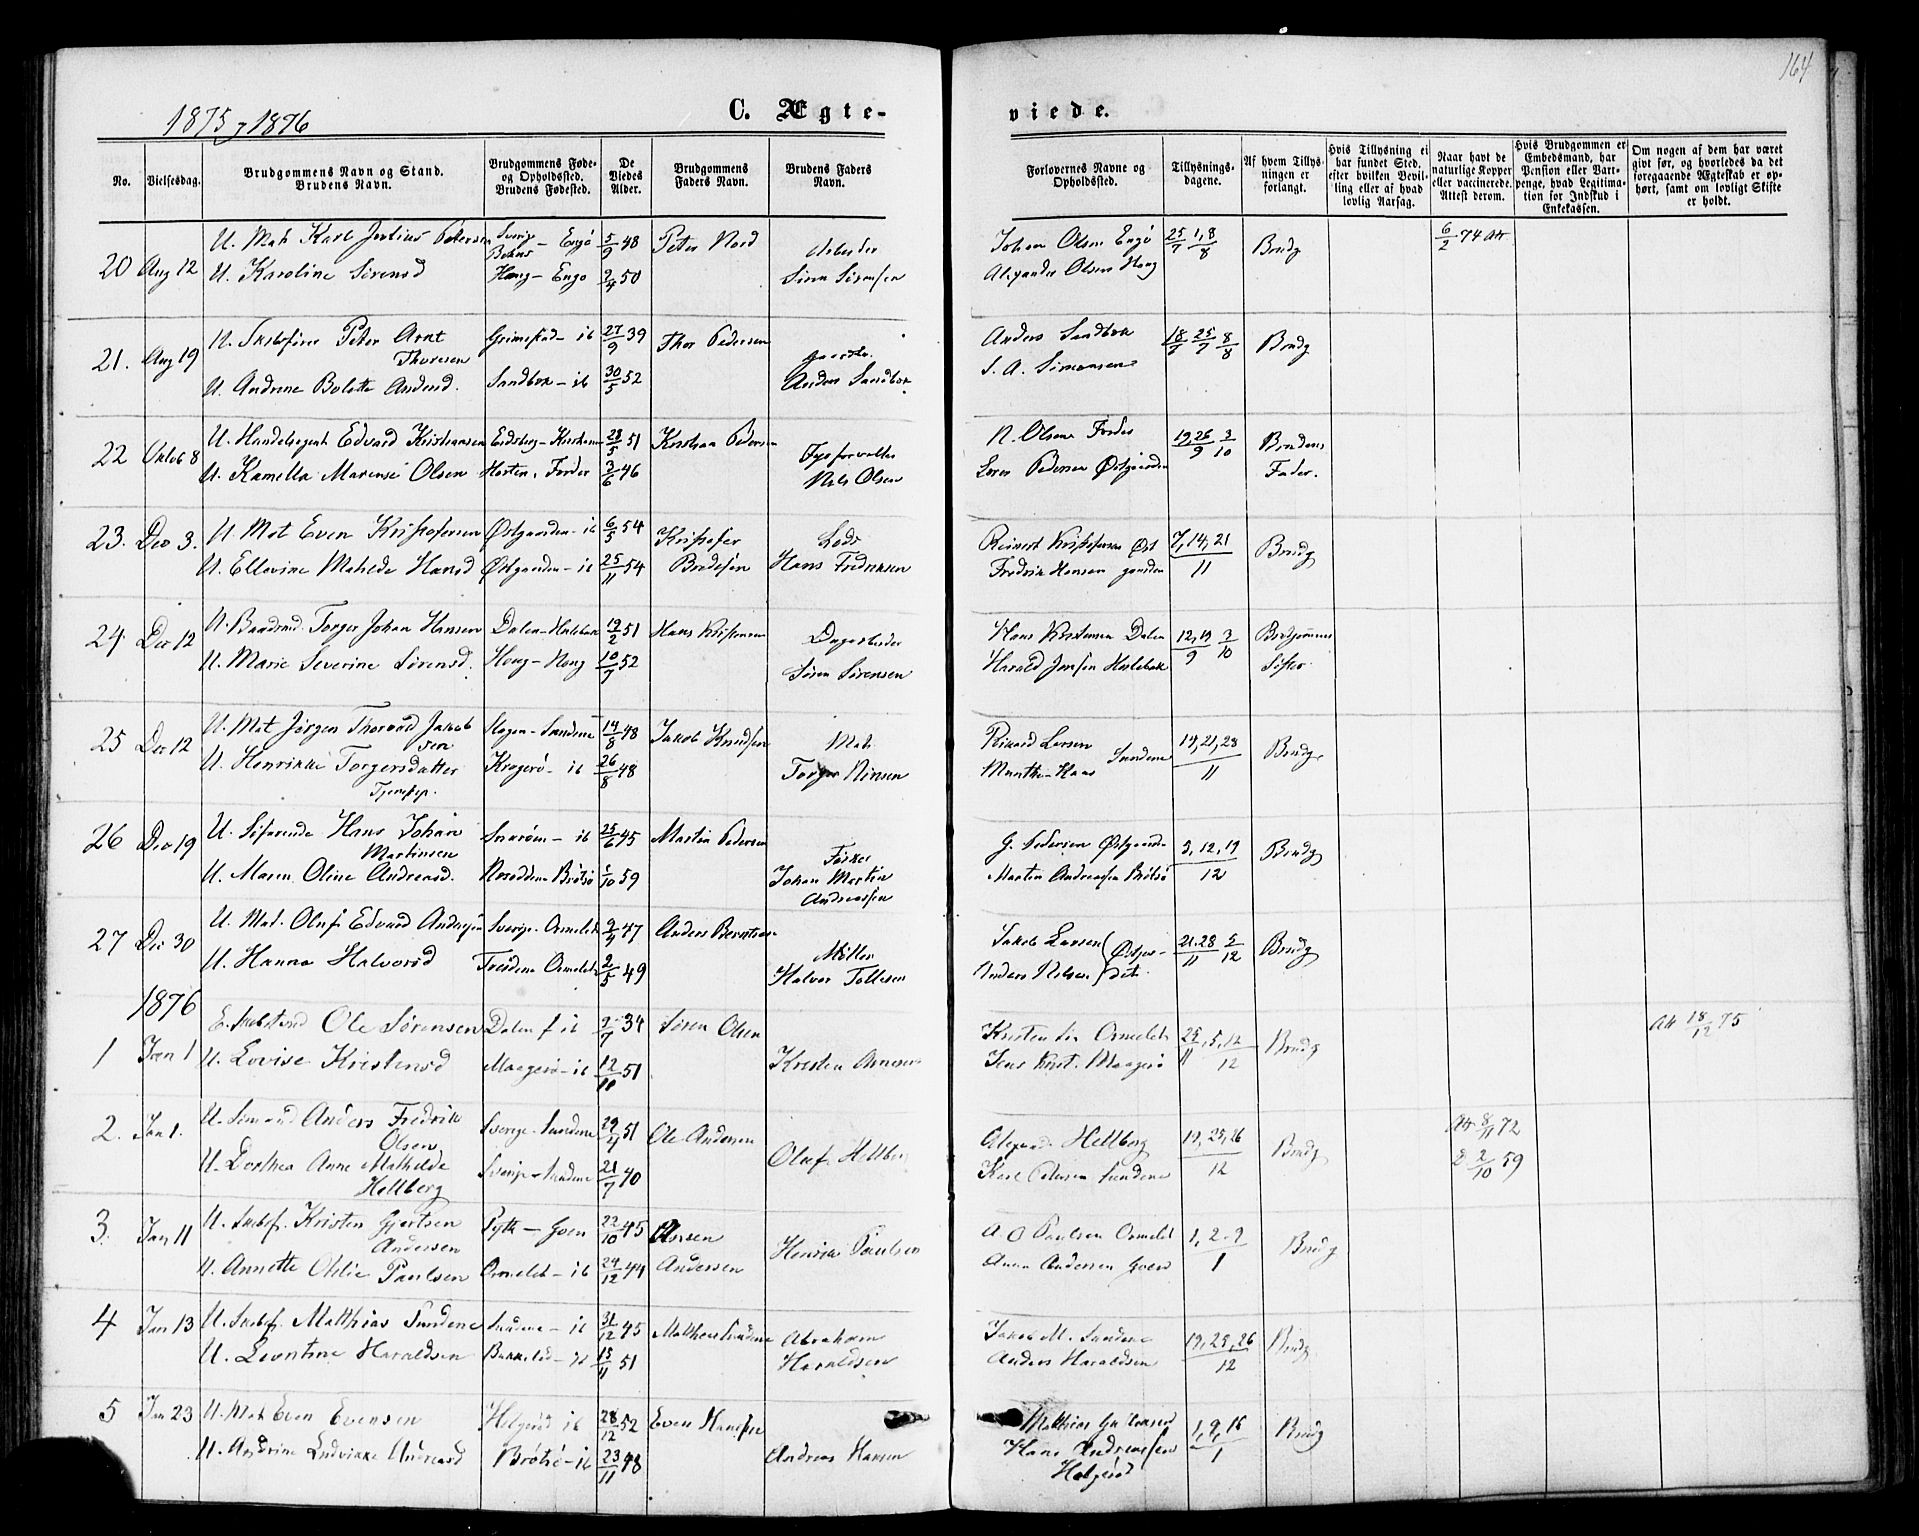 164
1875 & 1876
C. Ægte-
viede.
No.
Vielsesdag.
Brudgommens Navn og Stand.
Brudens Navn.
Brudgommens Føde-
og Opholdssted.
Brudens Fødested.
De
Viedes
Alder.
Brudgommens
Faders Navn.
Brudens Faders
Navn.
Forlovernes Navne og
Opholdssted.
Tillysnings-
dagene.
Af hvem Tillys-
ningen er
forlangt.
Hvis Tillysning ei
har fundet Sted,
efter hvilken Bevil-
ling eller af hvad
lovlig Aarsag.
Naar havt de
naturlige Kopper
eller vaccinerede.
Attest derom.
Hvis Brudgommen er
Embedsmand, har
Pension eller Vart-
penge, hvad Legitima-
tion for Indskud i
Enkekassen.
Om nogen af dem har været
gift før, og hvorledes da det
foregaaende Ægteskab er op-
hørt, samt om lovligt Skifte
er holdt.
20 Aug 12 U. Mat Karl Julius Petersen Sverig Bohus – Engø 5/9 48 Peter Nord Arbeider Johan Olsen Engø 25/7 1, 8/8 Brudg 6/2 74 Att
U. Karoline Sørensd Haug – Engø 2/4 50 Søren Sørensen Alexander Olsen Haug
21. Aug 19 U. Peter Arnt Thoresen Grimestad – ib 27/9 39 Thor Pedersen Anders Sandbæk 18/7 25/7 8/8 Brudg
U. Andrine Bolette Andersd. Sandbæk – ib 30/5 52 Anders Sandbæk S. A. Simonsen
22 Oktob 8 U. Handelsagent Edvard Kristiansen Eidsberg – 28/5 51 Kristian Pedersen Fyrforvalter N. Olsen Fördes 19, 26/9 3/10 Brudens Fader.
U. Kamella Marense Olsen Horten, Förder 3/6 46 Nils Olsen Pedersen Østgaarden
23. Dec 3. U. Mat Even Kristofersen Østgaarden – ib 6/5 54 Kristofer Bredesen Lods Reinert Kristofersen Øst 7, 14, 21/11 Brudg
U. Ellevine Matilde Hansd Østgaarden – ib 25/11 54 Hans Fredriksen Fredrik Hansen gaarden
24. Dec 12 U. Torger Johan Hansen Dalen – Holebæk 19/2 51 Hans Kristensen Dagarbeider Hans Kristensen Dalen 12, 19/9 3/10 Brudgommens Søster
U. Marie Severine Sørensd. Haug – Haug 10/7 52 Søren Sørensen Harald Jensen Holebæk
25 Dec 12 U. Mat Jørgen Thorvald Jakobsen Slagen – Sundene 14/8 48 Jakob Knudsen Mat. Rikard Larsen 14, 21, 28/11 Brudg.
U. Henrikke Torgersdatter Tjenestep. Kragerø – ib 26/8 48 Torger Ninsen Sundene
26 Dec 19 U. Søfarende Hans Johan Martinsen – ib 25/6 45 Martin Pedersen Fisker G. Pedersen Østgaarden 5, 12, 19/12 Brudg
U. Maren Oline Andreasd. Brøtsø 5/10 59 Johan Martin Andreassen Martin Andreassen Brøtsø
27 Dec 30 U. Mat. Oluf Edvard Andersen Sverige – Ormelet 9/4 47 Anders Berntsen Møller Jakob Larsen 21, 28/11 5/12 Brudg
U. Hanna Halvorsd Ormelet 2/5 49 Halvor Tollesen Anders Nilsen
1876
1 Jan 1 E. Ole Sørensen Dalen – ib 9/7 34 Søren Olsen Ormelet 25/11, 5, 12/12 Brudg Att 18/12 75
U. Lovise Kristensd Maagerø – ib 12/10 51 Kristen Jens Krist. Maagerø
2. Jan 1. U. Sømand Anders Fredrik Olsen Sverige – Sundene 29/4 51 Ole Andersen Hellberg 19, 25, 26/12 Brudg Att 8/11 72
U. Dorthea Anne Mathilde Hellberg Sverige – Sundene 21/7 40 Oluf Hellberg Karl Petersen Sundene 2/10 59
3. Jan 11 U. Skibsf. Kristen Gjertsen Andersen Pytt – Goen 22/10 45 Andersen A. O Paulsen Ormelet 1, 2, 9/1 Brudg
U. Annette Otilie Paulsen Ormelet – ib 24/12 44 Henrik Paulsen Andersen Goen
4 Jan 13 U. Skibsf. Matthias Sundene Sundene – ib 31/12 45 Mathias Sundene Abraham Haraldsen Jakob M. Sundene 19, 25, 26/12 Brudg
U. Leontine Haraldsen – ib 18/11 51 Anders Haraldsen
5 Jan 23 U. Mat Even Evensen Helgerød ib 28/12 52 Even Hansen Mathias 1, 9, 16/1 Brudg
U. Andrine Ludvikke Andreasd Brøtsø – ib 23/11 48 Andreas Hansen Hans Andreassen Helgerød